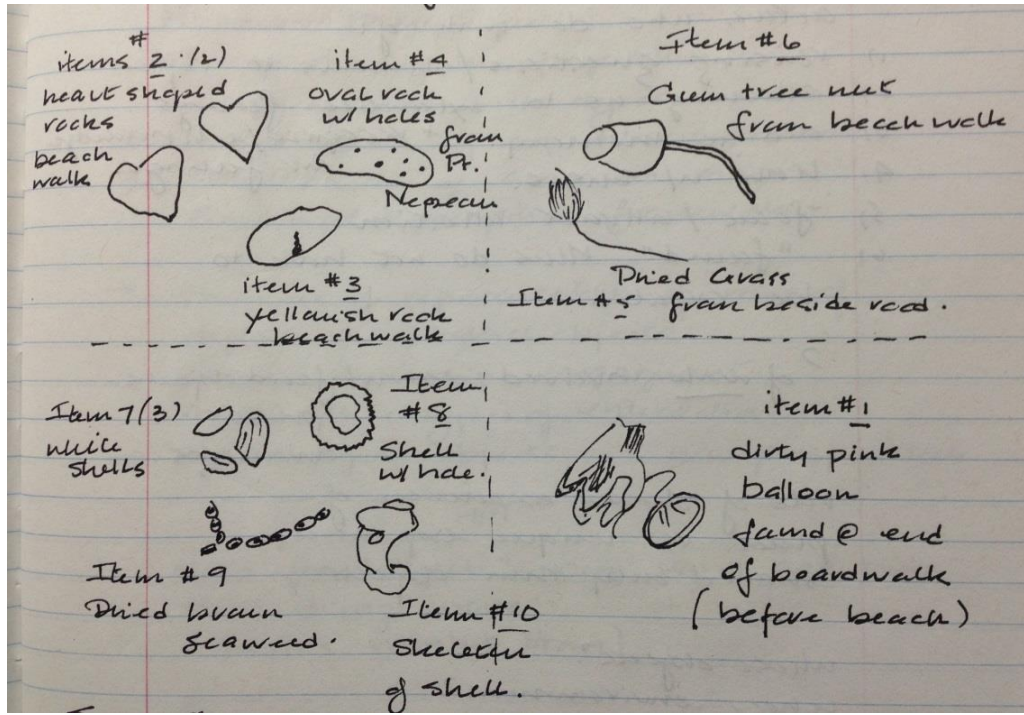 items # 2 (2)
heart shaped
rocks
beach
walk
item #4
oval rock
w/ holes
from
Pt.
Nepean
item #3
yellowish rock
beach walk
Item #6
Gum tree nut
from beach walk
Dried Grass
Item #5 from beside road.
Item 7(3)
white
shells
Item
#8
Shell
w/ hole.
Item #9
Dried brown
seaweed.
Item #10
Skeleton
of shell.
item #1
dirty pink
balloon
found @ end
of boardwalk
(before beach)